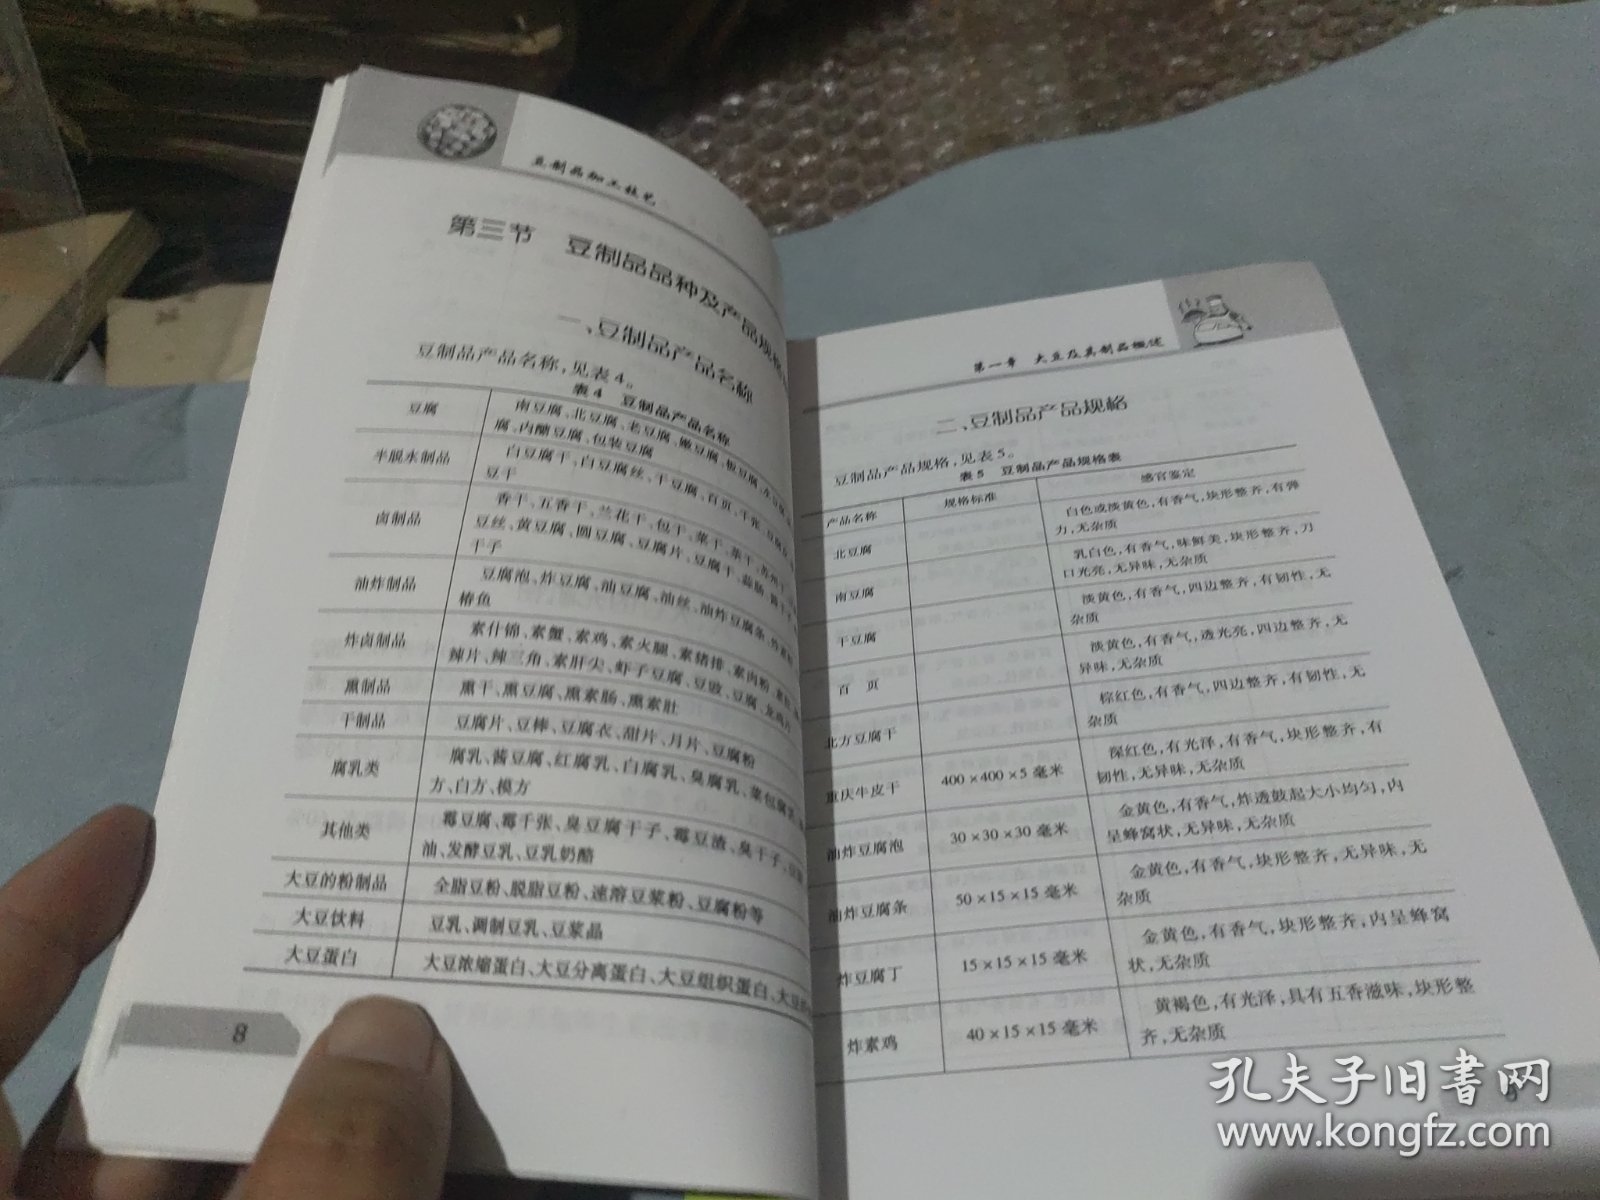 豆制品加工技艺
第三节 豆制品品种及产品规格
一、豆制品产品名称
豆制品产品名称,见表4。
表4 豆制品产品名称
豆腐
南豆腐、北豆腐、老豆腐、嫩豆腐、板豆腐、
腐、内酯豆腐、包装豆腐
半脱水制品
白豆腐干、白豆腐丝、干豆腐、百页、千张、
豆干
卤制品
香干、五香干、兰花干、包干、菜干、
豆丝、黄豆腐、圆豆腐、豆腐片、豆腐干、
干子
油炸制品
豆腐泡、炸豆腐、油豆腐、油丝、油炸豆腐条、
椿鱼
炸卤制品
素什锦、素蟹、素鸡、素火腿、素猪排、素肉粉、
辣片、辣三角、素肝尖、虾子豆腐、豆豉、豆腐、
熏制品
熏干、熏豆腐、熏素肠、熏素肚
干制品
豆腐片、豆棒、豆腐衣、甜片、月片、豆腐粉
腐乳类
腐乳、酱豆腐、红腐乳、白腐乳、臭腐乳、菜包腐乳、
方、白方、模方
其他类
霉豆腐、霉千张、臭豆腐干子、霉豆渣、臭干子、
油、发酵豆乳、豆乳奶酪
大豆的粉制品
全脂豆粉、脱脂豆粉、速溶豆浆粉、豆腐粉等
大豆饮料
豆乳、调制豆乳、豆浆晶
大豆蛋白
大豆浓缩蛋白、大豆分离蛋白、大豆组织蛋白、大豆
8
第一章 大豆及其制品概述
二、豆制品产品规格
豆制品产品规格,见表5。
表5 豆制品产品规格表
产品名称 规格标准 感官鉴定
北豆腐
白色或淡黄色,有香气,块形整齐,有弹
力,无杂质
南豆腐
乳白色,有香气,味鲜美,块形整齐,刀
口光亮,无异味,无杂质
干豆腐
淡黄色,有香气,四边整齐,有韧性,无
杂质
百 页
淡黄色,有香气,透光亮,四边整齐,无
异味,无杂质
北方豆腐干
棕红色,有香气,四边整齐,有韧性,无
杂质
重庆牛皮干 400×400×5毫米
深红色,有光泽,有香气,块形整齐,有
韧性,无异味,无杂质
油炸豆腐泡 30×30×30毫米
金黄色,有香气,炸透鼓起大小均匀,内
呈蜂窝状,无异味,无杂质
油炸豆腐条 50×15×15毫米
金黄色,有香气,块形整齐,无异味,无
杂质
炸豆腐丁 15×15×15毫米
金黄色,有香气,块形整齐,内呈蜂窝
状,无杂质
炸素鸡 40×15×15毫米
黄褐色,有光泽,具有五香滋味,块形整
齐,无杂质
孔夫子旧书网
www.kongfz.com